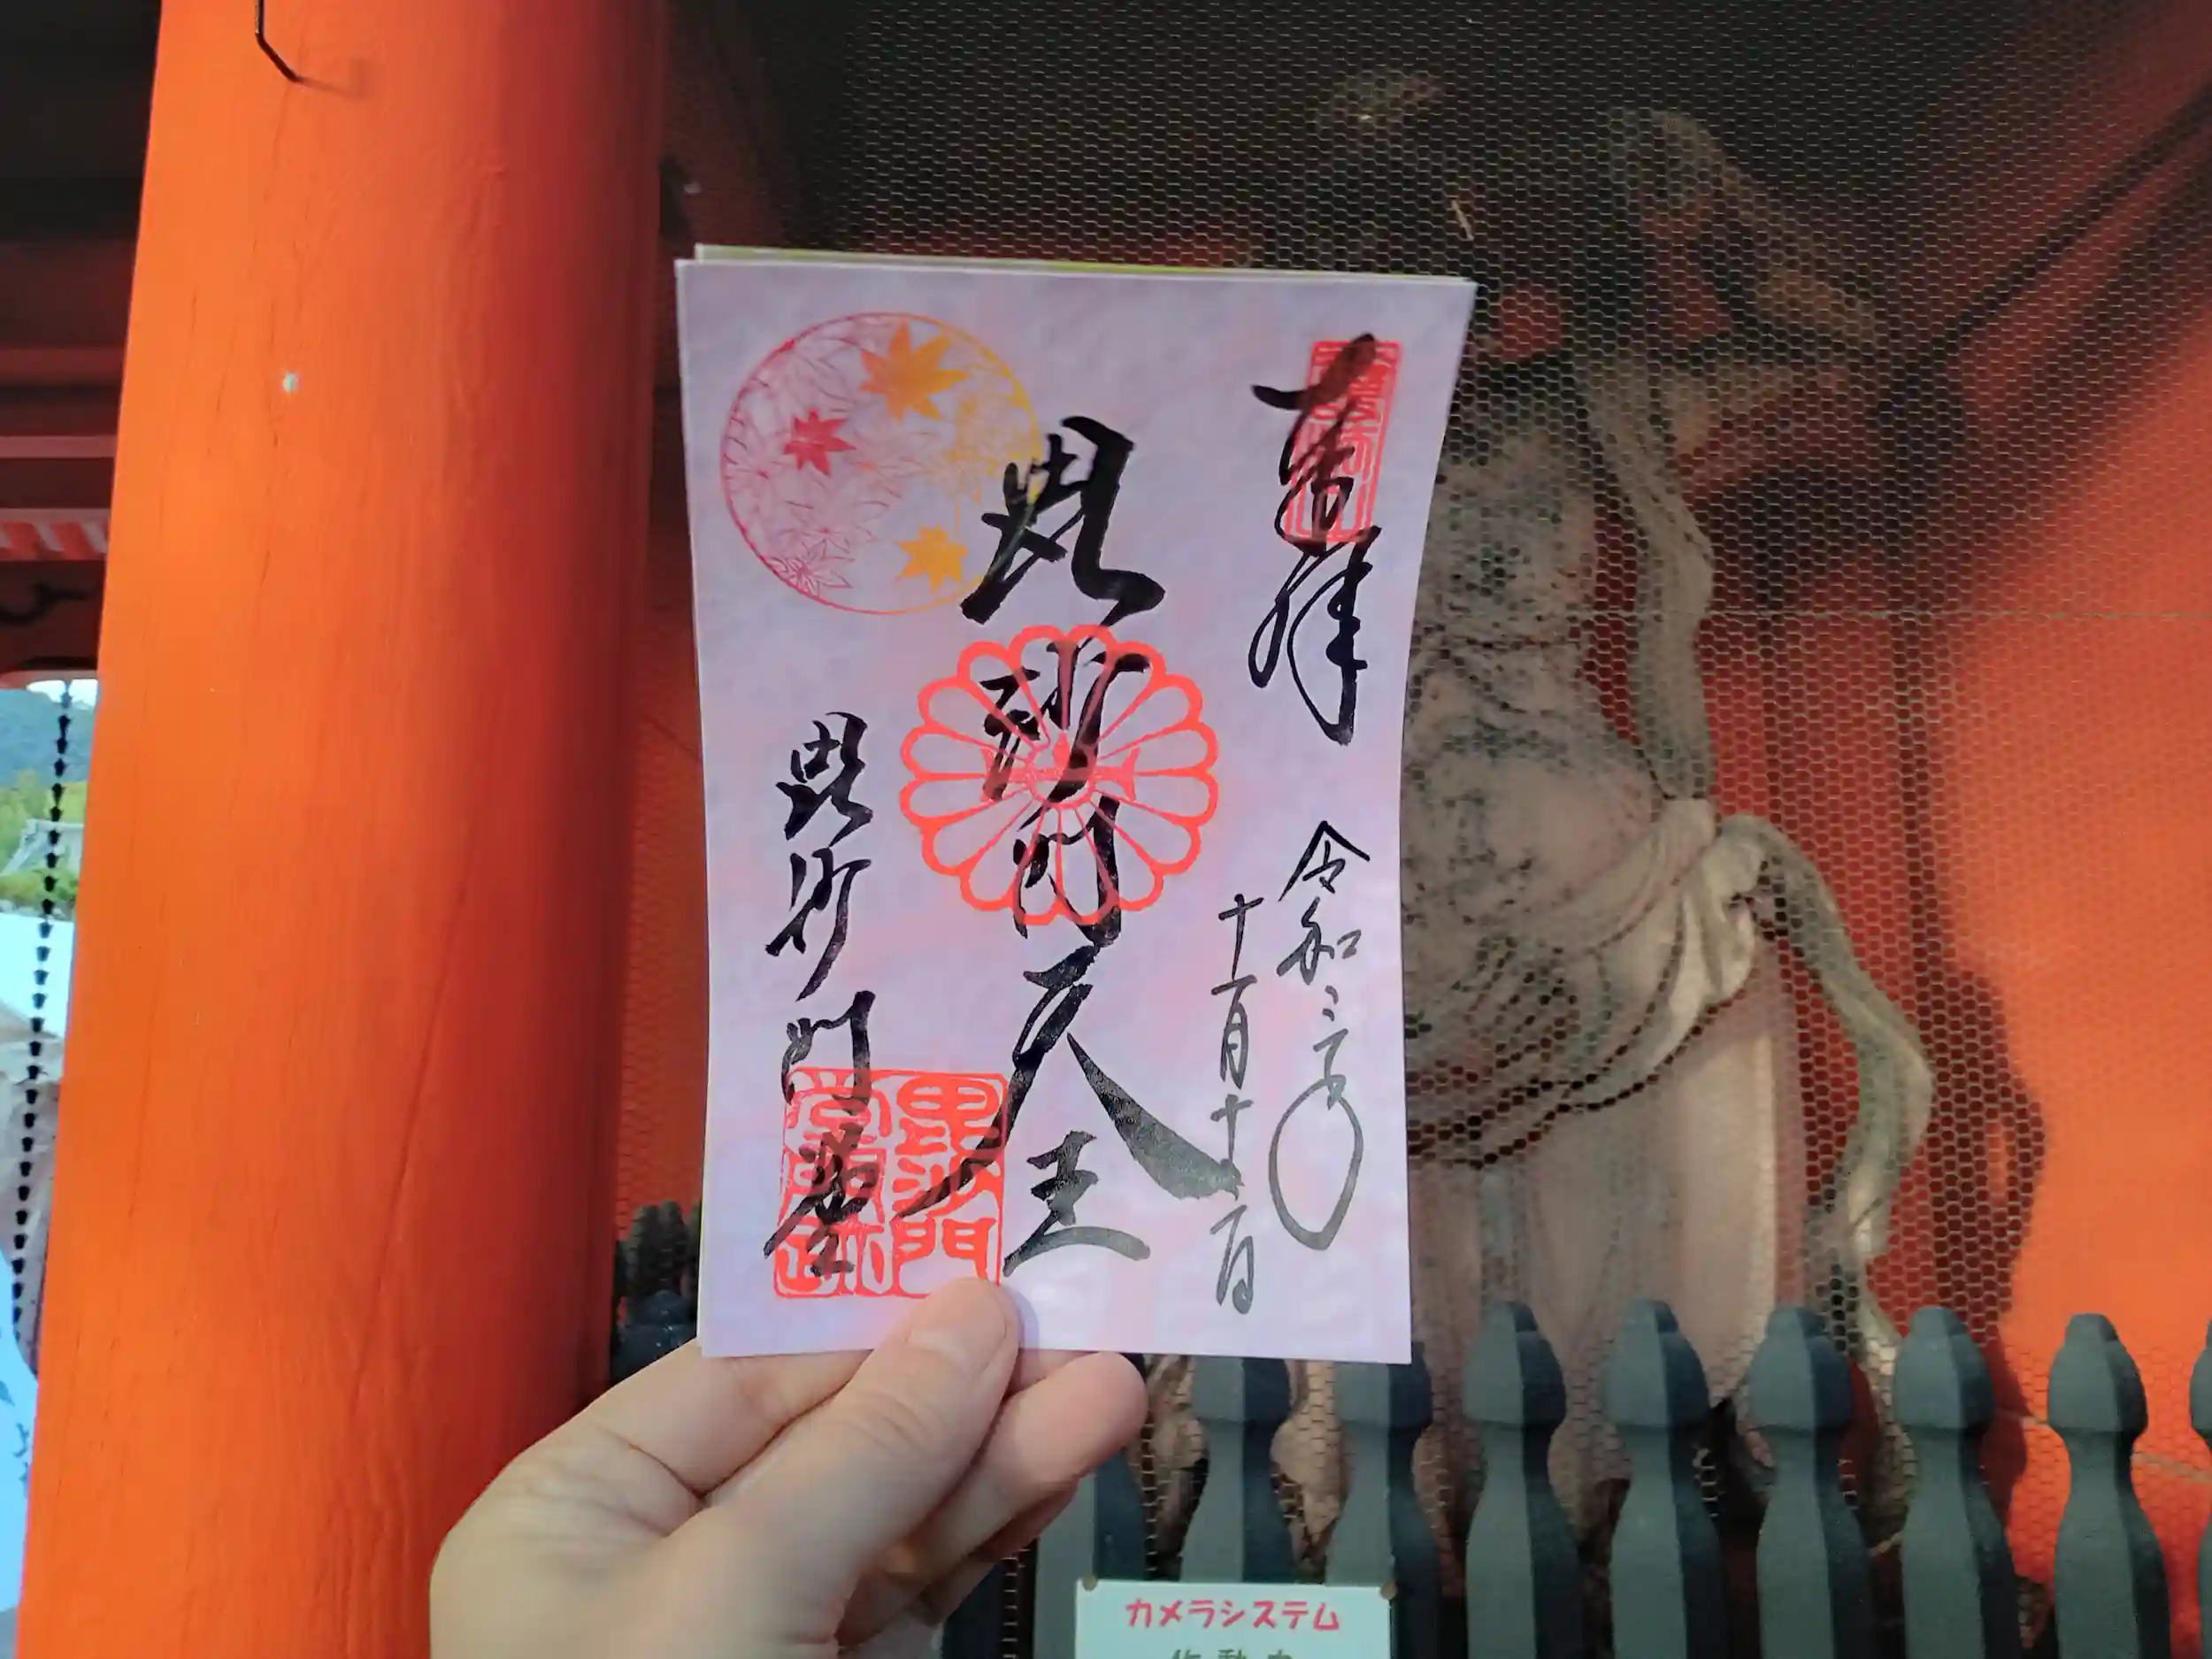 奉拝
令和二年
十一月十二日
毘沙門天王
毘沙門堂
毘沙門
カメラシステム
作動中